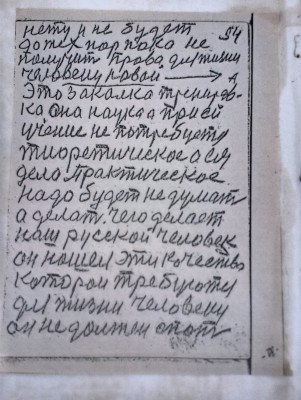 нету и не будет 54
до тех пор пока не
получит права для жизни
человеку новой → я
Это закалка трениров-
ка она наука а при ей
учение не потребуется
тиоретическое а ся
дело. Практическое
надо будет не думат
а делат. чего делает
наш русской человек
он нашел эту качества
которои требуюти
для жизни человеку
он не должен спат